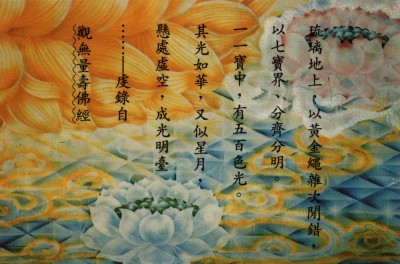 琉璃地上，以黃金繩雜次間錯，
以七寶界，分齊分明。
一一寶中，有五百色光。
其光如華，又似星月，
懸處虛空，成光明臺
……——虔錄自
觀無量壽佛經